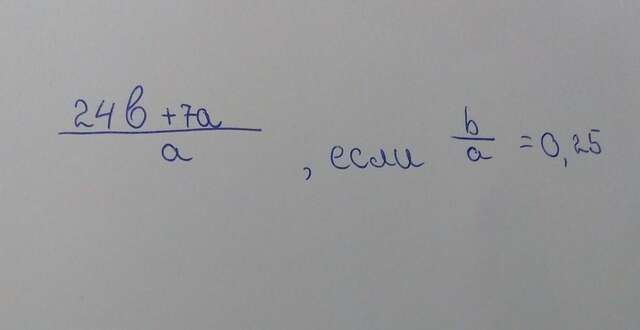 24b+7a
a
, если b/a = 0,25